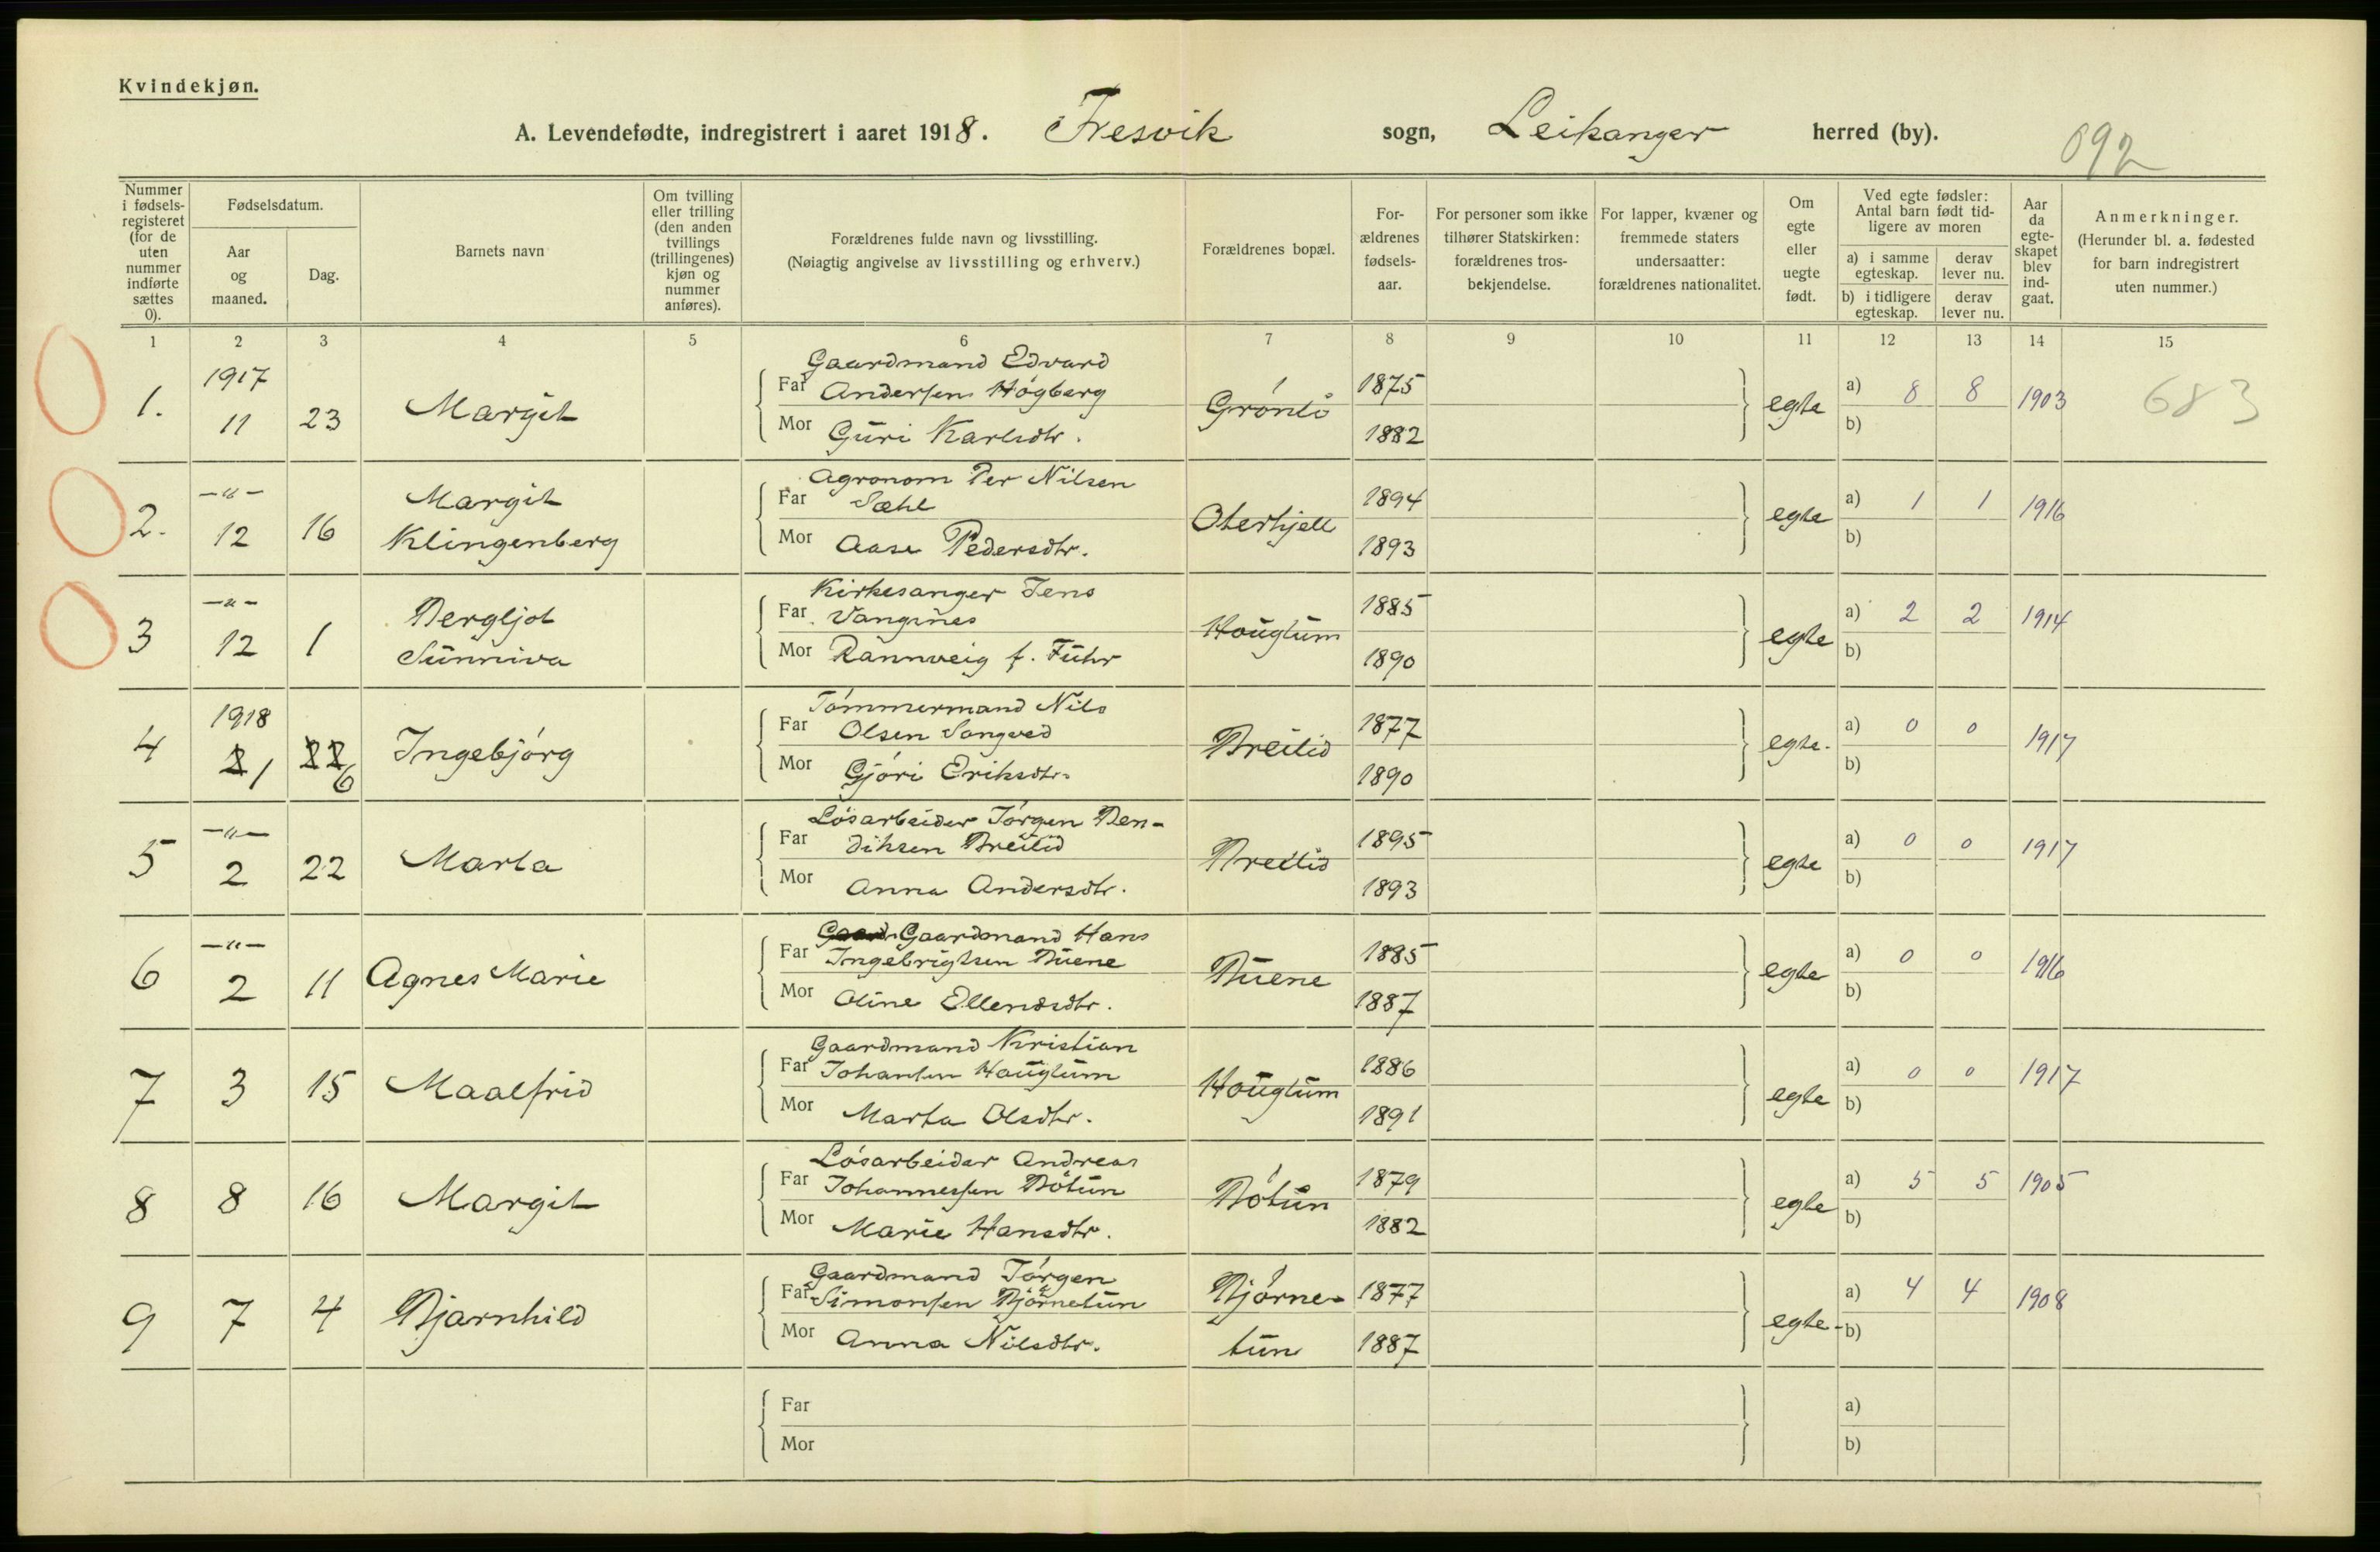 Kvindekjøn.
A. Levendefødte, indregistrert i aaret 1918. Fresvik sogn, Leikanger herred (by).
692
Nummer i fødsels-registeret (for de uten nummer indførte sættes 0).
Fødselsdatum.
Aar og maaned.
Dag.
Barnets navn
Om tvilling eller trilling (den anden tvillings (trillingenes) kjøn og nummer anføres).
Forældrenes fulde navn og livsstilling.
(Nøiagtig angivelse av livsstilling og erhverv.)
Forældrenes bopæl.
For-ældrenes fødsels-aar.
For personer som ikke tilhører Statskirken: forældrenes tros-bekjendelse.
For lapper, kvæner og fremmede staters undersaatter: forældrenes nationalitet.
Om egte eller uegte født.
Ved egte fødsler: Antal barn født tid-ligere av moren
a) i samme egteskap.
derav lever nu.
b) i tidligere egteskap.
derav lever nu.
Aar da egte-skapet blev ind-gaat.
Anmerkninger.
(Herunder bl. a. fødested for barn indregistrert uten nummer.)
1 2 3 4 5 6 7 8 9 10 11 12 13 14 15
1917
Gaardmand Edvard
1. 11 23 Margit Far Andersen Högberg Grönlö 1875 egte a) 8 8 1903 683
Mor Guri Karlsdtr. 1882 b)
-"- Agronom Per Nilsen
2. 12 16 Margit Klingenberg Far Sæhl 1894 egte a) 1 1 1916
Mor Aase Pedersdtr. 1893 b)
-"- Kirkesanger Jens
3 12 1 Bergljot Sunniva Far Vangsnes Houglum 1885 egte a) 2 2 1914
Mor Rannveig f. Fuhr 1890 b)
1918 Tömmermand Nils
4 1 6 Ingebjörg Far Olsen Songved Breilid 1877 egte. a) 0 0 1917
Mor Gjöri Eriksdtr. 1890 b)
-"- Lösarbeider Jörgen Ben-
5 2 22 Marta Far diksen Breilid Breilid 1895 egte a) 0 0 1917
Mor Anna Andersdtr. 1893 b)
-"- Gaardmand Hans
6 2 11 Agnes Marie Far Ingebrigtsen Buene Buene 1885 egte a) 0 0 1916
Mor Oline Ellendsdtr. 1887 b)
Gaardmand Kristian
7 3 15 Maalfrid Far Johansen Houglum Houglum 1886 egte a) 0 0 1917
Mor Marta Olsdtr. 1891 b)
Lösarbeider Andreas
8 8 16 Margit Far Johannessen Bötun Bötun 1879 egte a) 5 5 1905
Mor Marie Hansdtr. 1882 b)
Gaardmand Jörgen
9 7 4 Bjarnhild Far Simonsen Björnetun Björne- 1877 egte- a) 4 4 1908
Mor Anna Nilsdtr. tun 1887 b)
Far a)
Mor b)